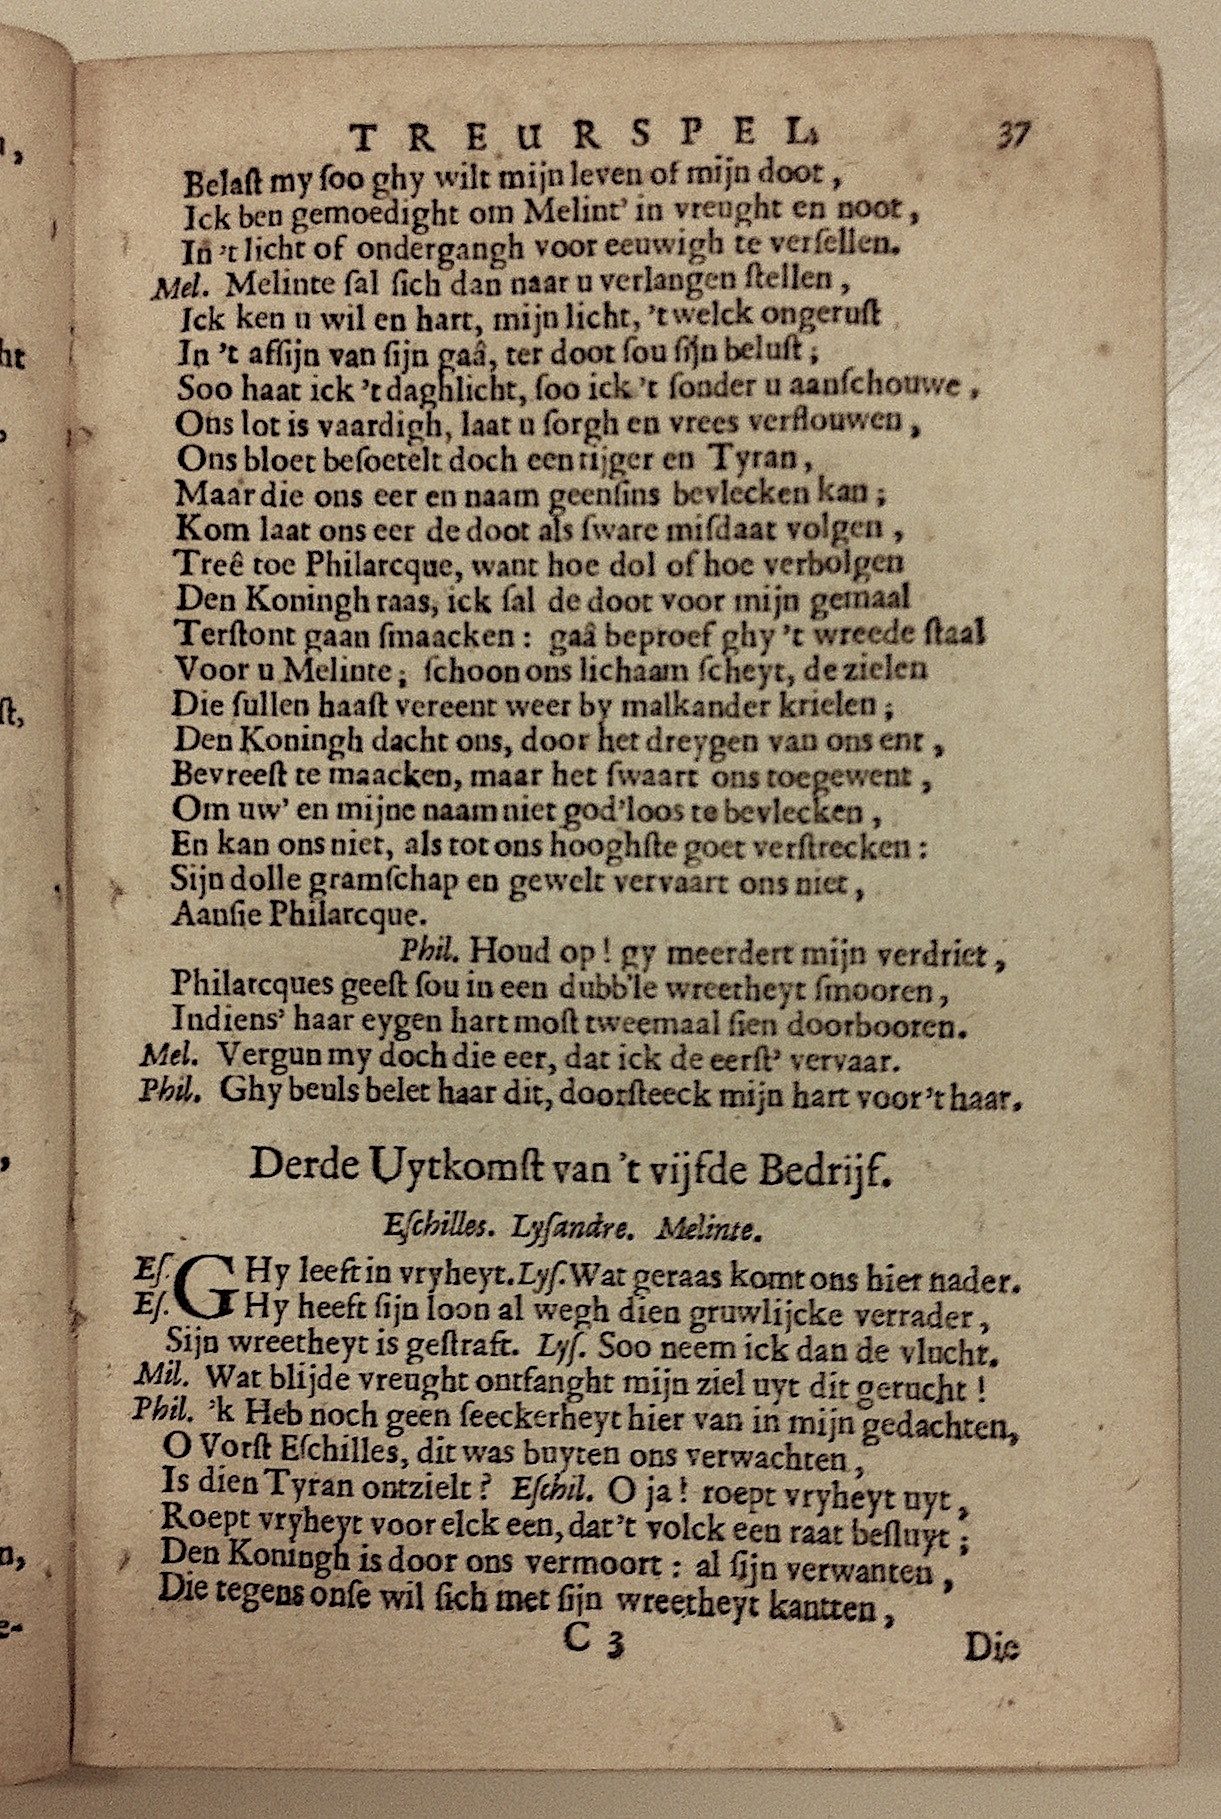 TREURSPEL. 37
Belaſt my ſoo ghy wilt mijn leven of mijn doot,
Ick ben gemoedight om Melint' in vreught en noot,
In 't licht of ondergangh voor eeuwigh te verſellen.
Mel. Melinte ſal ſich dan naar u verlangen ſtellen,
Ick ken u wil en hart, mijn licht, 't welck ongeruſt
In 't afſijn van ſijn gaâ, ter doot ſou ſijn beluſt;
Soo haat ick 't daghlicht, ſoo ick 't ſonder u aanſchouwe,
Ons lot is vaardigh, laat u ſorgh en vrees verflouwen,
Ons bloet beſoetelt doch een tijger en Tyran,
Maar die ons eer en naam geenſins bevlecken kan;
Kom laat ons eer de doot als ſware miſdaat volgen,
Treê toe Philarcque, want hoe dol of hoe verbolgen
Den Koningh raas, ick ſal de doot voor mijn gemaal
Terſtont gaan ſmaacken: gaâ beproef ghy 't wreede ſtaal
Voor u Melinte; ſchoon ons lichaam ſcheyt, de zielen
Die ſullen haaſt vereent weer by malkander krielen;
Den Koningh dacht ons, door het dreygen van ons ent,
Bevreeſt te maacken, maar het ſwaart ons toegewent,
Om uw' en mijne naam niet god'loos te bevlecken,
En kan ons niet, als tot ons hooghſte goet verſtrecken:
Sijn dolle gramſchap en gewelt vervaart ons niet,
Aanſie Philarcque.
Phil. Houd op! gy meerdert mijn verdriet,
Philarcques geeſt ſou in een dubb'le wreetheyt ſmooren,
Indiens' haar eygen hart moſt tweemaal ſien doorbooren.
Mel. Vergun my doch die eer, dat ick de eerſt' vervaar.
Phil. Ghy beuls belet haar dit, doorſteeck mijn hart voor 't haar.
Derde Uytkomſt van 't vijfde Bedrijf.
Eſchilles. Lyſandre. Melinte.
Eſ. GHy leeft in vryheyt. Lyſ. Wat geraas komt ons hier nader.
Eſ. GHy heeft ſijn loon al wegh dien gruwlijcke verrader,
Sijn wreetheyt is geſtraft. Lyſ. Soo neem ick dan de vlucht.
Mil. Wat blijde vreught ontfanght mijn ziel uyt dit gerucht!
Phil. 'k Heb noch geen ſeeckerheyt hier van in mijn gedachten,
O Vorſt Eſchilles, dit was buyten ons verwachten,
Is dien Tyran ontzielt? Eſchil. O ja! roept vryheyt uyt,
Roept vryheyt voor elck een, dat 't volck een raat beſluyt;
Den Koningh is door ons vermoort: al ſijn verwanten,
Die tegens onſe wil ſich met ſijn wreetheyt kantten,
C 3 Die